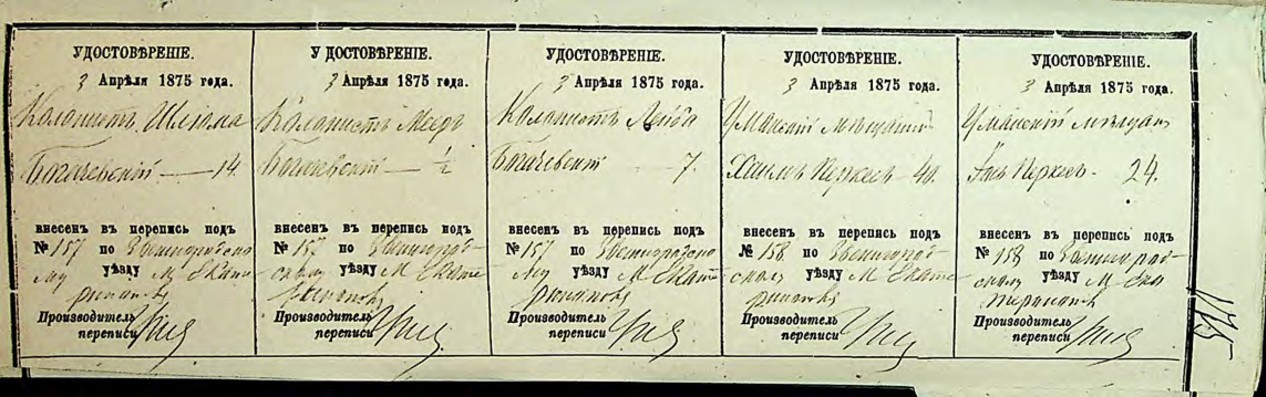 УДОСТОВѢРЕНІЕ.
3 Апрѣля 1875 года.
Колонистъ Шлёма
Богачевскій — 14.
внесенъ въ перепись подъ
№ 157 по Звенигородско
му уѣзду М. Екате
ринополь
Производитель
переписи
УДОСТОВѢРЕНІЕ.
3 Апрѣля 1875 года.
Колонистъ Меер
Богачевскій — ½
внесенъ въ перепись подъ
№ 157 по Звенигород-
скому уѣзду М. Екате
ринополь
Производитель
переписи
УДОСТОВѢРЕНІЕ.
3 Апрѣля 1875 года.
Колонистъ Лейба
Богачевскій — 7.
внесенъ въ перепись подъ
№ 157 по Звенигородско
му уѣзду М. Екате
Производитель
переписи
УДОСТОВѢРЕНІЕ.
3 Апрѣля 1875 года.
Уманскій мѣщанин
Хаимъ Перкель — 40.
внесенъ въ перепись подъ
№ 158 по Звенигород-
скому уѣзду М. Екате
ринополь
Производитель
переписи
УДОСТОВѢРЕНІЕ.
3 Апрѣля 1875 года.
Уманскій мѣщан
Перкель - 24.
внесенъ въ перепись подъ
№ 158 по Звенигород-
скому уѣзду М. Ека
Производитель
переписи